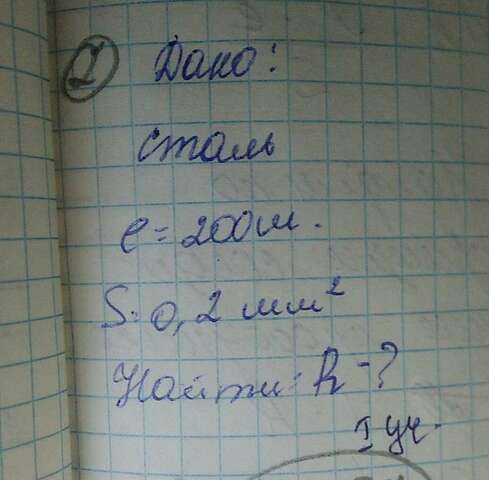 ① Дано:
сталь
l = 200 м.
S = 0,2 мм²
Найти: R - ?
I уч.